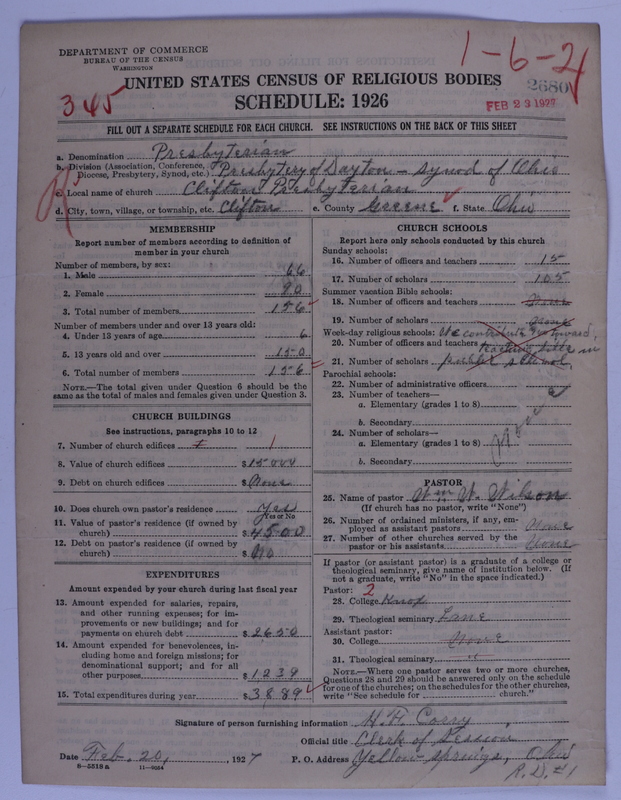 DEPARTMENT OF COMMERCE
BUREAU OF THE CENSUS
WASHINGTON
1-6-21
26801
345
FEB 23 1927
UNITED STATES CENSUS OF RELIGIOUS BODIES
SCHEDULE: 1926
FILL OUT A SEPARATE SCHEDULE FOR EACH CHURCH. SEE INSTRUCTIONS ON THE BACK OF THIS SHEET
a. Denomination Presbyterian
b. Division (Association, Conference, Diocese, Presbytery, Synod, etc.) Presbytery of Dayton – Synod of Ohio
c. Local name of church Clifton Presbyterian
d. City, town, village, or township, etc. Clifton e. County Greene f. State Ohio
MEMBERSHIP
Report number of members according to definition of
member in your church
Number of members, by sex:
1. Male 66
2. Female 90
3. Total number of members 156
Number of members under and over 13 years old:
4. Under 13 years of age 6
5. 13 years old and over 150
6. Total number of members 156
NOTE.—The total given under Question 6 should be
same as the total of males and females given under Question 3.
CHURCH BUILDINGS
See instructions, paragraphs 10 to 12
7. Number of church edifices 1
8. Value of church edifices $15000
9. Debt on church edifices $None
10. Does church own pastor's residence Yes
Yes or No
11. Value of pastor's residence (if owned by
church) $4500
12. Debt on pastor's residence (if owned by
church) $No
EXPENDITURES
Amount expended by your church during last fiscal year
13. Amount expended for salaries, repairs,
and other running expenses; for im-
provements or new buildings; and for
payments on church debt $2650
14. Amount expended for benevolences, in-
cluding home and foreign missions; for
denominational support; and for all
other purposes $1239
15. Total expenditures during year $3889
CHURCH SCHOOLS
Report here only schools conducted by this church
Sunday schools:
16. Number of officers and teachers 15
17. Number of scholars 105
Summer vacation Bible schools:
18. Number of officers and teachers None
19. Number of scholars None
Week-day religious schools: We contribute toward
20. Number of officers and teachers teaching Bible in
21. Number of scholars public school
Parochial schools:
22. Number of administrative officers
23. Number of teachers—
a. Elementary (grades 1 to 8)
b. Secondary
24. Number of scholars—
a. Elementary (grades 1 to 8)
b. Secondary
None
PASTOR
25. Name of pastor Wm W. Wilson
(If church has no pastor, write "None")
26. Number of ordained ministers, if any, em-
ployed as assistant pastors None
27. Number of other churches served by the
pastor or his assistants None
If pastor (or assistant pastor) is a graduate of a college or
theological seminary, give name of institution below. (If
not a graduate, write "No" in the space indicated.)
Pastor: 2
28. College Knox
29. Theological seminary Lane
Assistant pastor:
30. College None
31. Theological seminary "
NOTE.—Where one pastor serves two or more churches,
Questions 28 and 29 should be answered only on the schedule
for one of the churches; on the schedules for the other churches,
write "See schedule for church."
Signature of person furnishing information H. H. Corry
Official title Clerk of Session
Date Feb. 20, 1927 P. O. Address Yellow Springs, Ohio
8—5518a 11—9264
R.D. #1